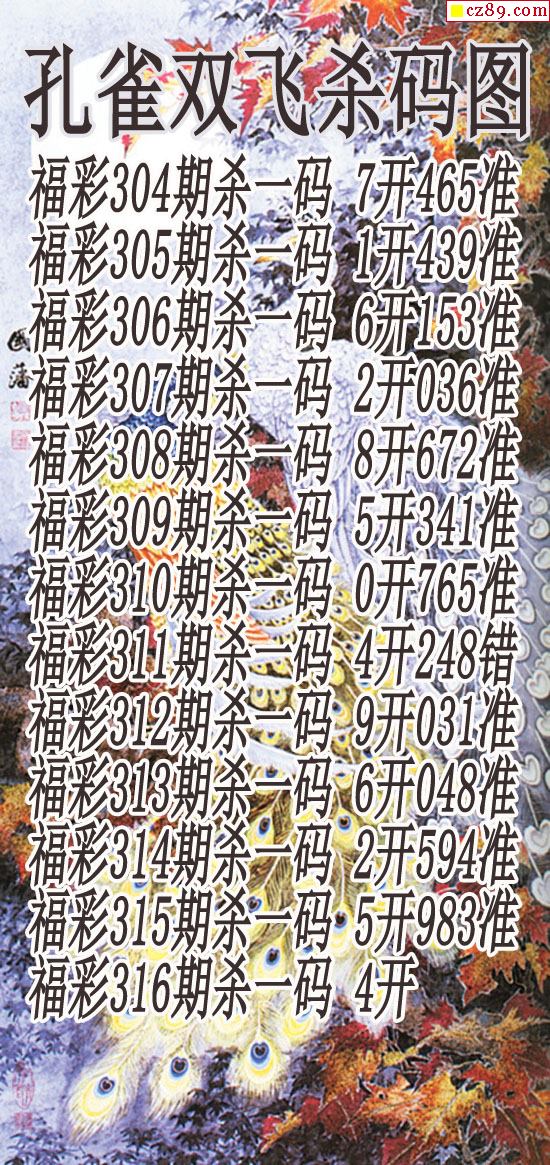 cz89.com
孔雀双飞杀码图
福彩304期杀一码 7开465准
福彩305期杀一码 1开439准
福彩306期杀一码 6开153准
福彩307期杀一码 2开036准
福彩308期杀一码 8开672准
福彩309期杀一码 5开341准
福彩310期杀一码 0开765准
福彩311期杀一码 4开248错
福彩312期杀一码 9开031准
福彩313期杀一码 6开048准
福彩314期杀一码 2开594准
福彩315期杀一码 5开983准
福彩316期杀一码 4开